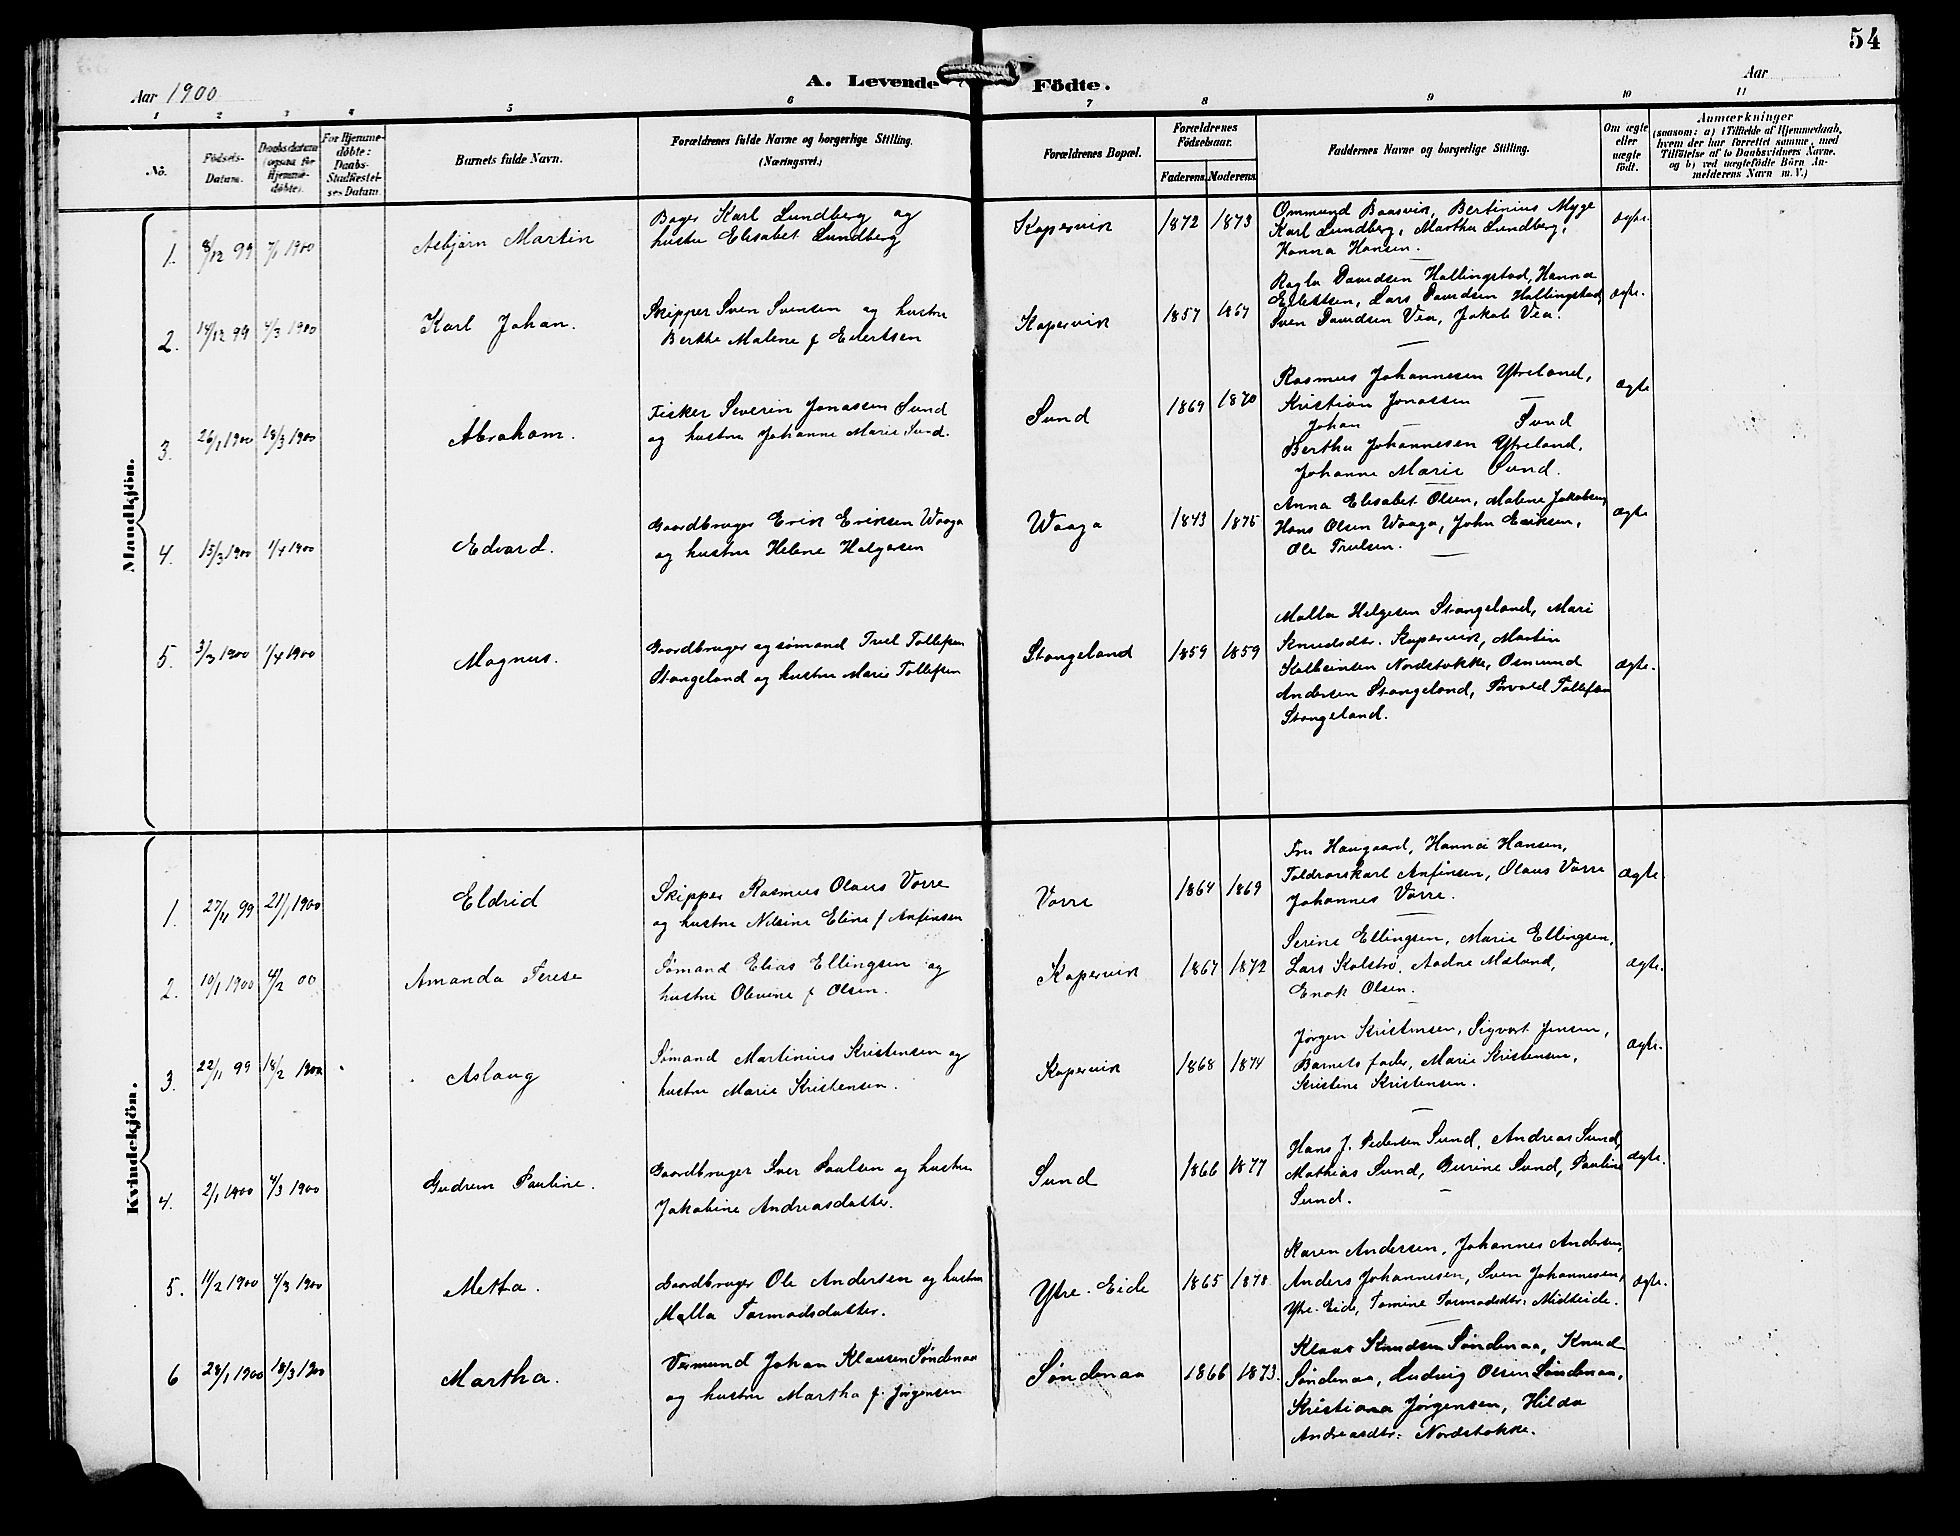 54
Aar 1900
A. Levende Födte.
Aar
1 2 3 4 5 6 7 8 9 10 11
No.
Födsels-Datum.
Daabsdatum (ogsaa for Hjemme-døbte).
For Hjemme-døbte: Daabs-Stadfæstel-ses Datum.
Barnets fulde Navn.
Forældrenes fulde Navne og borgerlige Stilling. (Næringsvei.)
Forældrenes Bopæl.
Forældrenes Födselsaar.
Faderens. Moderens.
Faddernes Navne og borgerlige Stilling.
Om ægte eller uægte födt.
Anmærkninger
(saasom: a) i Tilfælde af Hjemmedaab,
hvem der har forrettet samme, med
Tilföielse af to Daabsvidners Navne.
og b) ved uægtefödte Börn An-
melderens Navn m. V.)
Mandkjön.
1. 8/12 99 7/1 1900 Asbjørn Martin
Bager Karl Lundberg og
hustru Elisabet Lundberg
Kopervik 1872 1873
Ommund Baasvik, Bertinius Myge
Karl Lundberg, Martha Lundberg,
Hanna Hansen.
ægte.
2. 14/12 99 4/3 1900 Karl Johan.
Skipper Sven Svensen og hustru
Berthe Malene f Eilertsen
Kopervik 1857 1867
Ragla Davidsen Hallingstad, Hanna
Eilertsen, Lars Davidsen Hallingstad,
Sven Davidsen Vea, Jakob Vea.
ægte.
3. 26/1 1900 18/3 1900 Abraham.
Fisker Severin Jonassen Sund
og hustru Johanne Marie Sund.
Sund 1869 1870
Rasmus Johannesen Ytreland,
Kristian Jonassen —
Johan — Sund
Bertha Johannesen Ytreland,
Johanne Marie Sund.
ægte
4. 15/3 1900 1/4 1900 Edvard.
Gaardbruger Erik Eriksen Waaga
og hustru Helene Helgesen
Waaga 1843 1875
Anna Elisabet Olsen, Malene Jakobsen,
Hans Olsen Waaga, John Eriksen,
Ole Trulsen.
ægte
5. 3/3 1900 1/4 1900 Magnus.
Gaardbruger og sømand Truls Tollefsen
Stangeland og hustru Marie Tollefsen
Stangeland 1859 1859
Malla Helgesen Stangeland, Mari
Knudsdtr. Kopervik, Martin
Kolbeinsen Nordstokke, Osmund
Andersen Stangeland, Torvald Tollefsen
Stangeland.
ægte.
Kvindekjön.
1. 27/11 99 21/1 1900 Eldrid
Skipper Rasmus Olaus Vorre
og hustru Nilsine Eline f Anfinsen
Vorre 1864 1869
Fru Haugaard, Hanna Hansen,
Toldrorskarl Anfinsen, Olaus Vorre
Johannes Vorre.
ægte
2. 10/1 1900 4/2 00 Amanda Terese
Sømand Elias Ellingsen og
hustru Olevine f Olsen.
Kopervik 1867 1872
Serine Ellingsen, Marie Ellingsen,
Lars Kolstrø, Aadne Mæland,
Enok Olsen.
ægte.
3. 22/11 99 18/2 1900 Aslaug
Sømand Martinius Kristensen og
hustru Marie Kristensen.
Kopervik 1868 1874
Jørgen Kristensen, Sigvart Jensen,
Barnets fader, Marie Kristensen,
Kristine Kristensen.
ægte.
4. 2/1 1900 4/3 1900 Gudrun Pauline.
Gaardbruger Iver Paulsen og hustru
Jakobine Andreasdatter.
Sund 1866 1877
Hans J. Pedersen Sund, Andreas Sund,
Mathias Sund, Gurine Sund, Pauline
Sund.
ægte.
5. 11/2 1900 4/3 1900 Metta.
Gaardbruger Ole Andersen og hustru
Malla Tormodsdatter.
Ytre-Eide 1865 1878
Karen Andersen, Johannes Andersen,
Anders Johannesen, Sven Johannesen,
Ytre-Eide, Tomine Tormodsdtr. Midteide.
ægte.
6 28/1 1900 18/3 1900 Martha.
Vermund Johan Klausen Søndenaa
og hustru Martha f. Jørgensen
Søndenaa 1866 1873.
Klaus Knudsen Søndenaa, Knud
Søndenaa, Ludvig Olsen Søndenaa,
Kristiana Jørgensen, Hilda
Andreasdtr. Nordstokke.